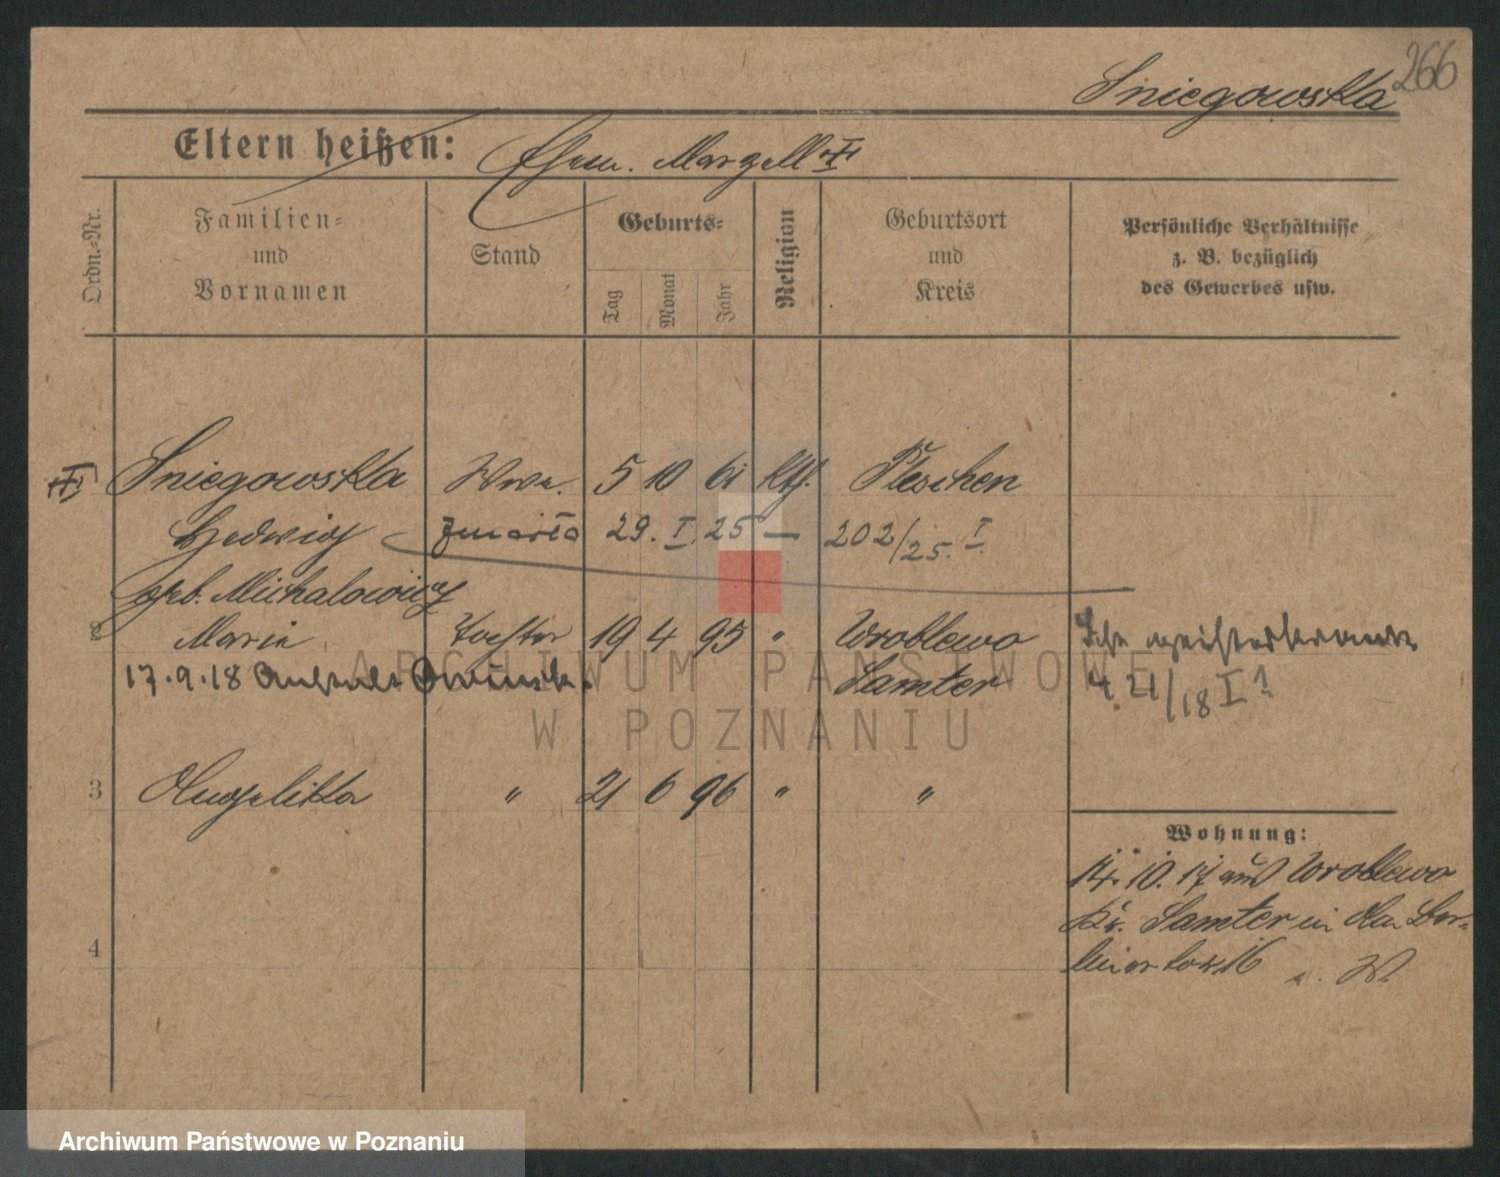 266
Sniegowska
Eltern heißen: Ehem. Marzell
Ordn.-Nr.
Familien-
und
Vornamen
Stand
Geburts-
Tag
Monat
Jahr
Religion
Geburtsort
und
Kreis
Persönliche Verhältnisse
z. B. bezüglich
des Gewerbes usw.
Sniegowska Wwe. 5 10 61 kth. Pleschen
Hedwig zmarła 29. I. 25 — 202/25. I.
geb. Michalowicz
2 Marie Tochter 19 4 95 " Wroblewo
17.9.18 Anstalt Samter
21/18 I
3 Angelika " 21 6 96 " "
4
Wohnung:
14. 10. 17 aus Wroblewo
Kr. Samter in
16 W.
ARCHIWUM PAŃSTWOWE
W POZNANIU
Archiwum Państwowe w Poznaniu